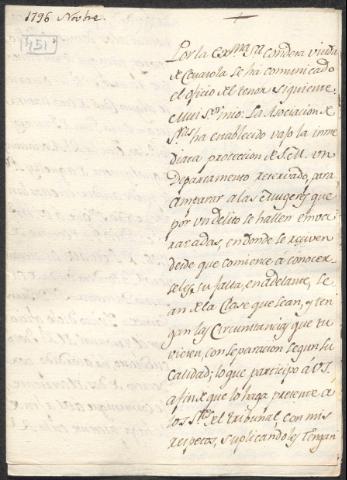 1796 Novbre.
451
Por la Exma. Sra. Condesa Viuda
de
se ha comunicado
el oficio del tenor siguiente.
Mui Sor. mio: La Asociacion de
Sras. ha establecido vajo la inme
diata proteccion de S.M. un
Departamento reservado, para
amparar a las Mugeres que
por un delito se hallen emba
razadas, en donde se reciven
desde que comience a conocer
seles su falta, en adelante, se
an de la Clase que sean, y ten
gan las Circunstancias que tu
vieren, con separacion segun su
calidad; lo que participo á VS.
a fin de que lo haga presente a
los SSres. del Tribunal con mis
respetos, suplicandoles tengan